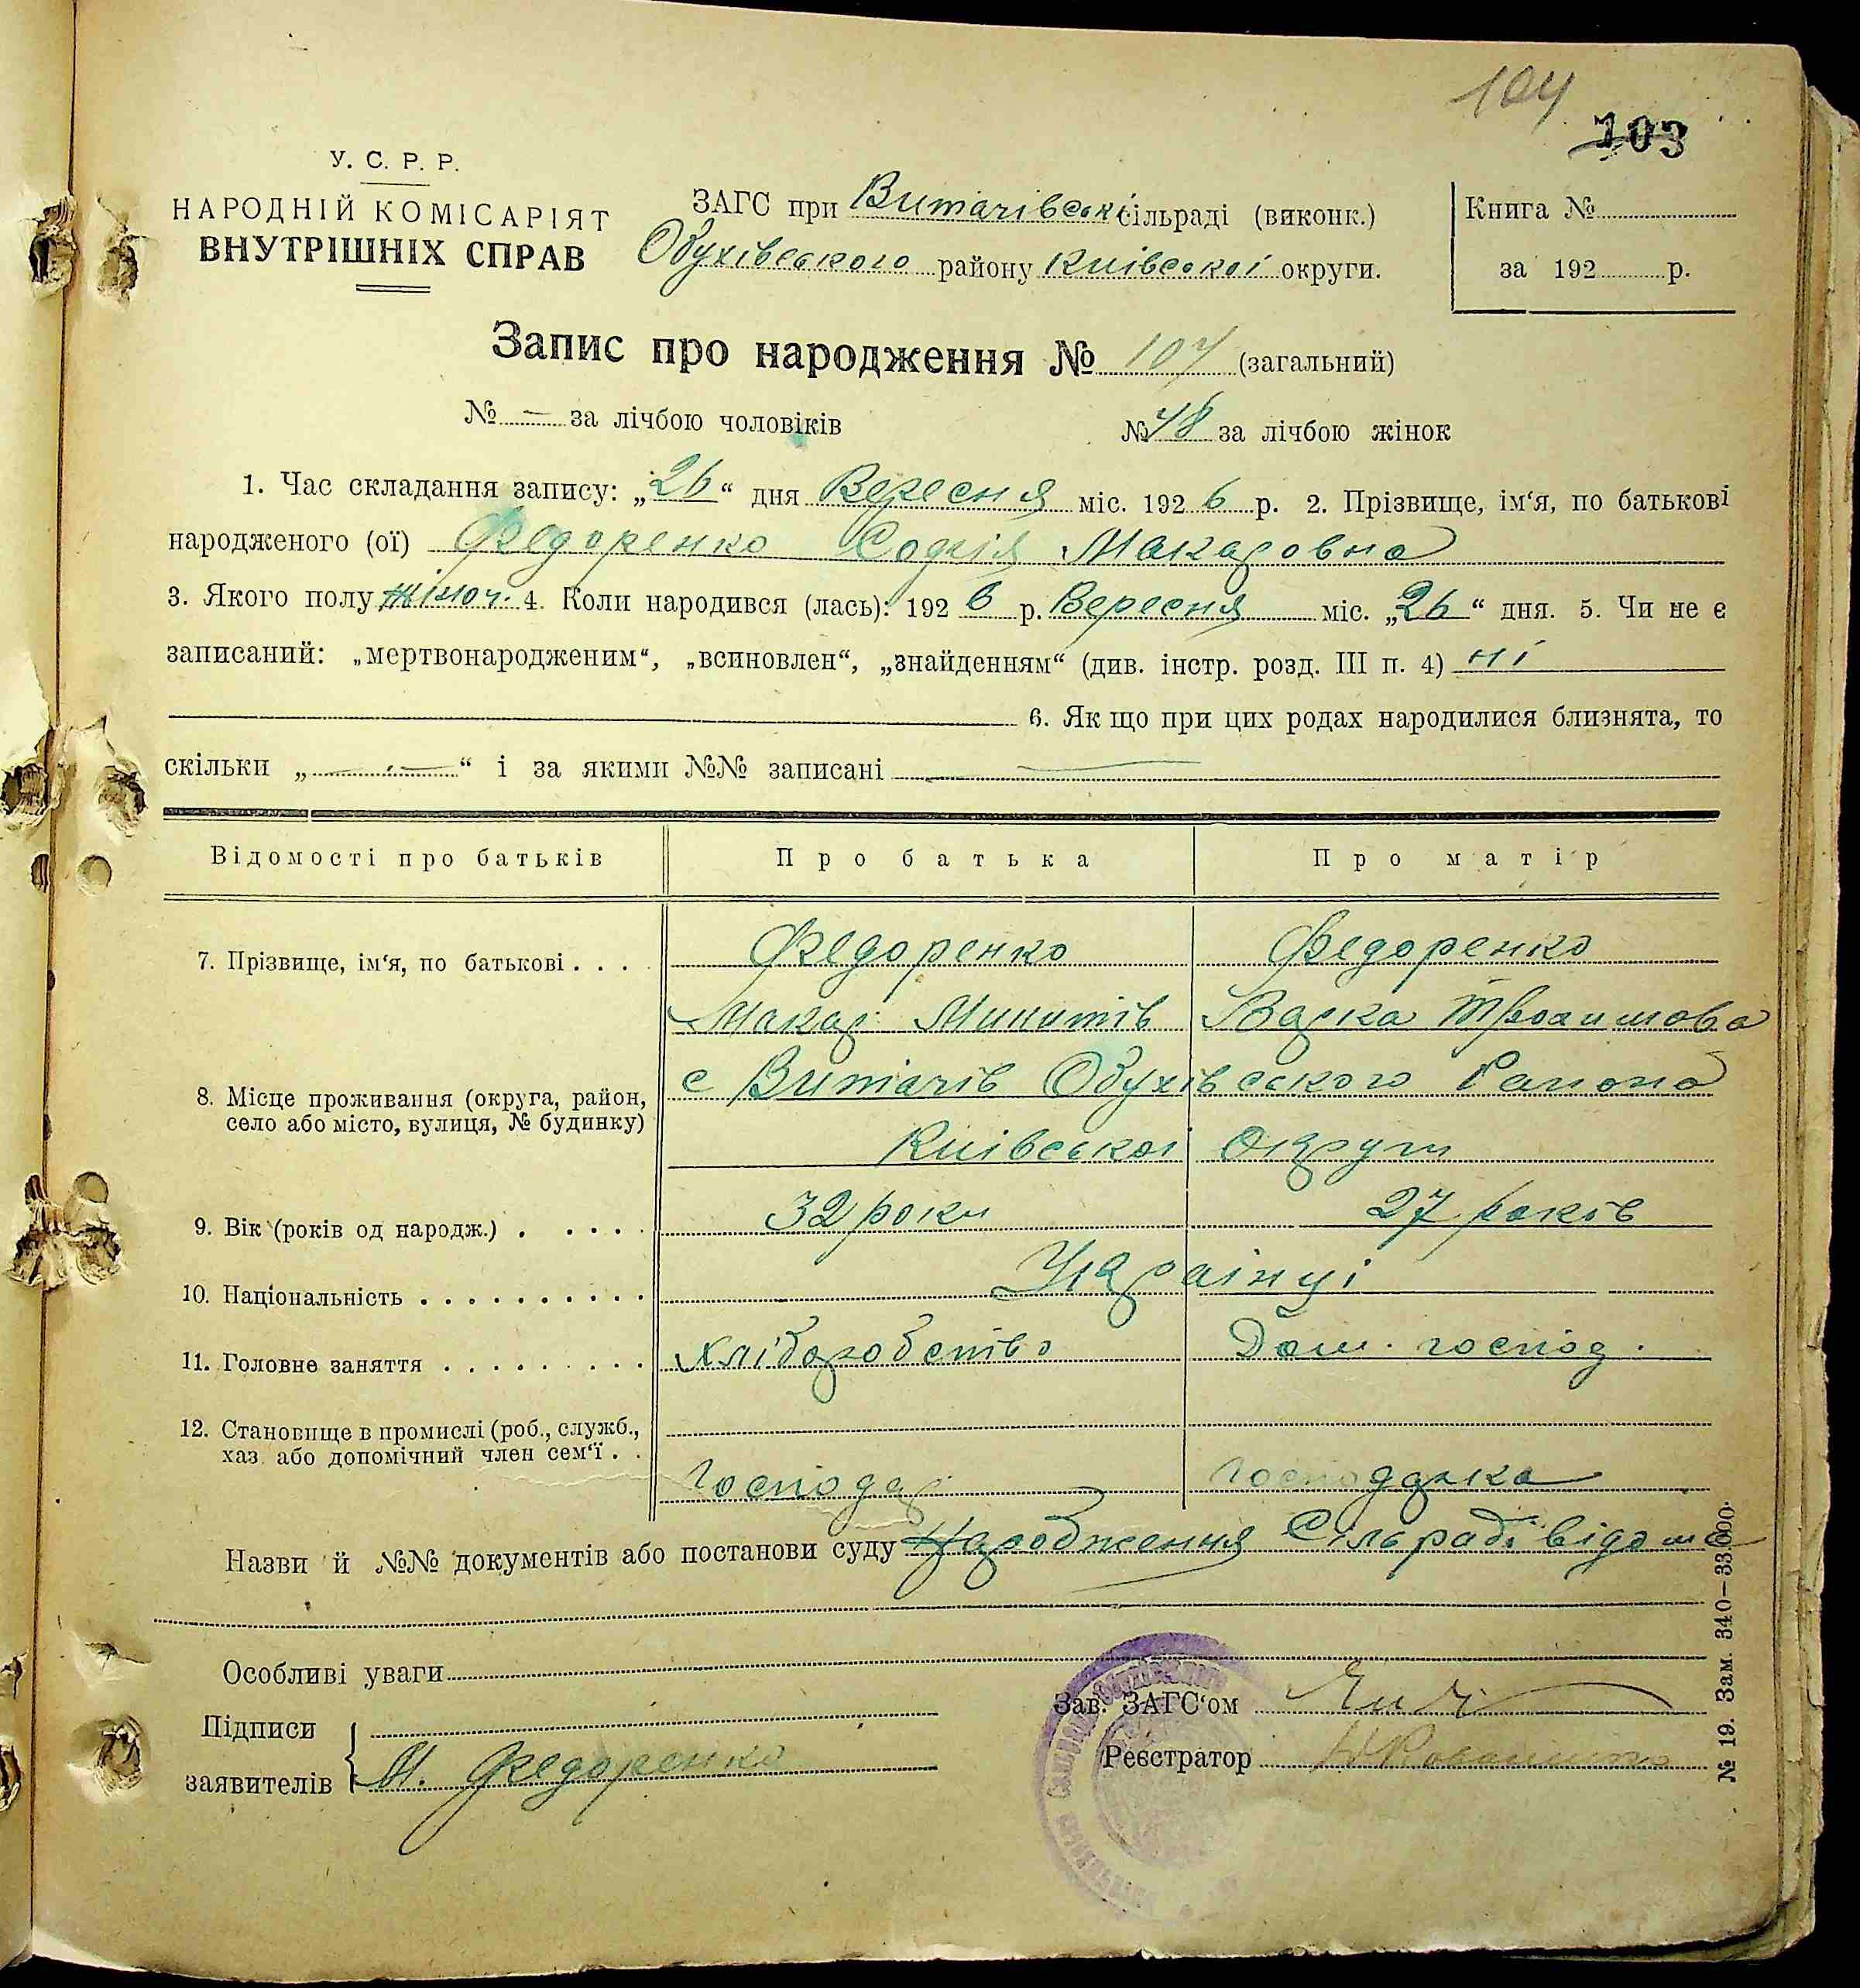 104
103
У. С. Р. Р.
НАРОДНІЙ КОМІСАРІЯТ
ВНУТРІШНІХ СПРАВ
ЗАГС при Витачівські сільраді (виконк.)
Обухівського району Київської округи.
Книга №
за 192 р.
Запис про народження № 107 (загальний)
№ — за лічбою чоловіків
№ 48 за лічбою жінок
1. Час складання запису: „26“ дня Вересня міс. 1926 р. 2. Прізвище, ім‘я, по батькові
народженого (ої) Федоренко Софія Макаровна
3. Якого полу жіноч. 4. Коли народився (лась): 1926 р. Вересня міс. „26“ дня. 5. Чи не є
записаний: „мертвонародженим“, „всиновлен“, „знайденням“ (див. інстр. розд. III п. 4) ні
6. Як що при цих родах народилися близнята, то
скільки „—“ і за якими №№ записані —
Відомості про батьків Про батька Про матір
7. Прізвище, ім‘я, по батькові . . . Федоренко Федоренко
Макар Микитів Варка Трохимова
8. Місце проживання (округа, район, село або місто, вулиця, № будинку) с Витачів Обухівського Района
Київської Округи
9. Вік (років од народж.) . . . . . 32 роки 27 років
10. Національність . . . . . . . . . . Українці
11. Головне заняття . . . . . . . . . хліборобство Дом. господ.
12. Становище в промислі (роб., служб.,
хаз. або допомічний член сем‘ї . . Господар Господарка
Назви й №№ документів або постанови суду Народження Сільраді відомо
Особливі уваги
Підписи
заявителів М. Федоренко
Зав. ЗАГС‘ом
Реєстратор
№ 19. Зам. 340—33.000.